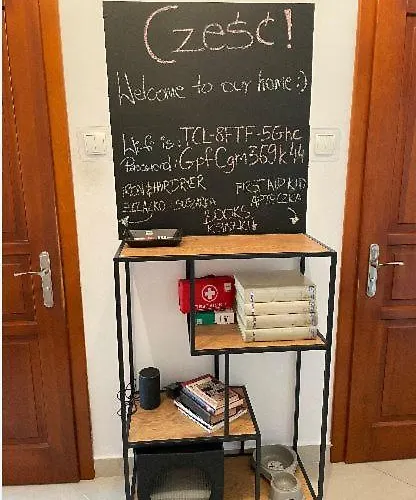 Cześć!
Welcome to our home :)
Wi-fi is: TCL-8FTF-5Ghc
Password: GpfCgm369k44
IRON & HAIRDRYER
FIRST AID KID
ŻELAZKO I SUSZARKA
APTECZKA
BOOKS
KSIĄŻKI